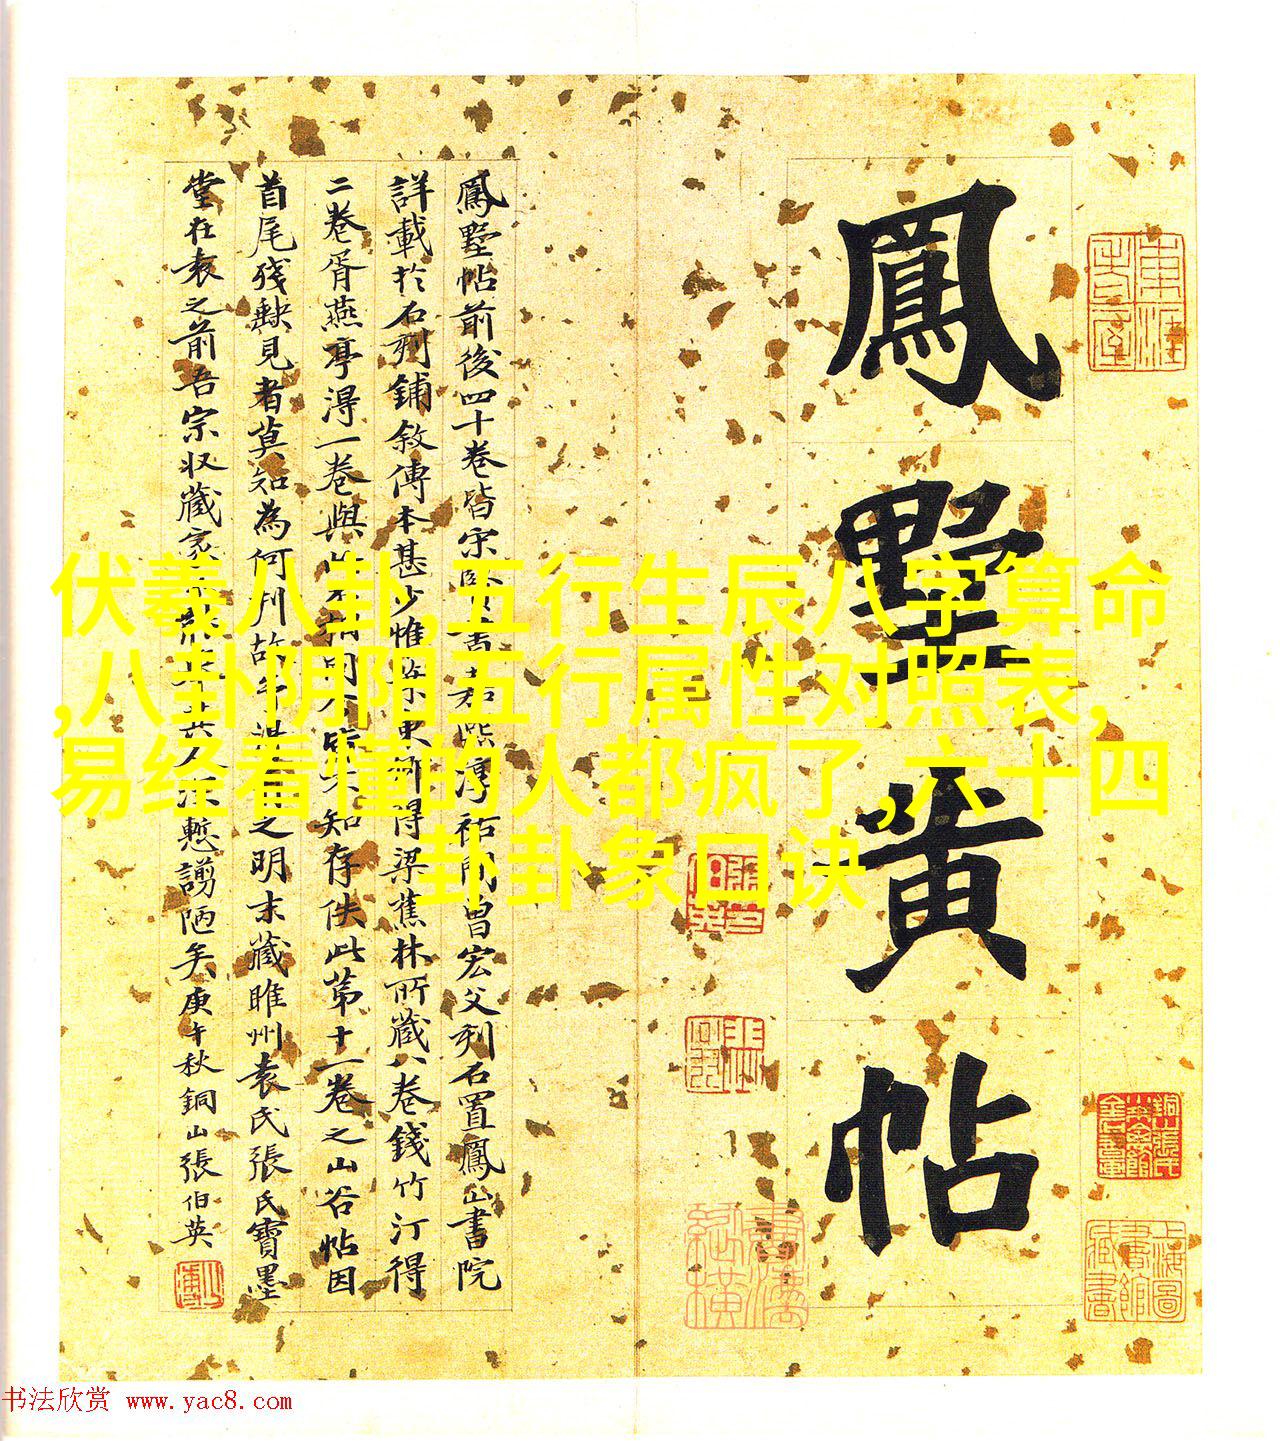 鳳墅黄帖
鳳墅帖前後四十卷皆宋賢書嘉熙淳祐間曾宏父刻石置鳳山書院
詳載於石刻鋪敘傳本甚少惟
得梁蕉林所藏八卷錢竹汀得
二卷胥燕亭得一卷與
知存佚此第十一卷之山谷帖因
首尾殘缺見者莫知為何刊故
之明末藏睢州袁氏張氏寶墨
堂在袁之前吾宗収藏家
慙謭陋矣庚午秋銅山張伯英
伏羲八卦,五行生辰八字算命
,八卦阴阳五行属性对照表,
易经看懂的人都疯了,六十四
卦卦象口诀
上海圖書館藏書
书法欣赏 www.yac8.com